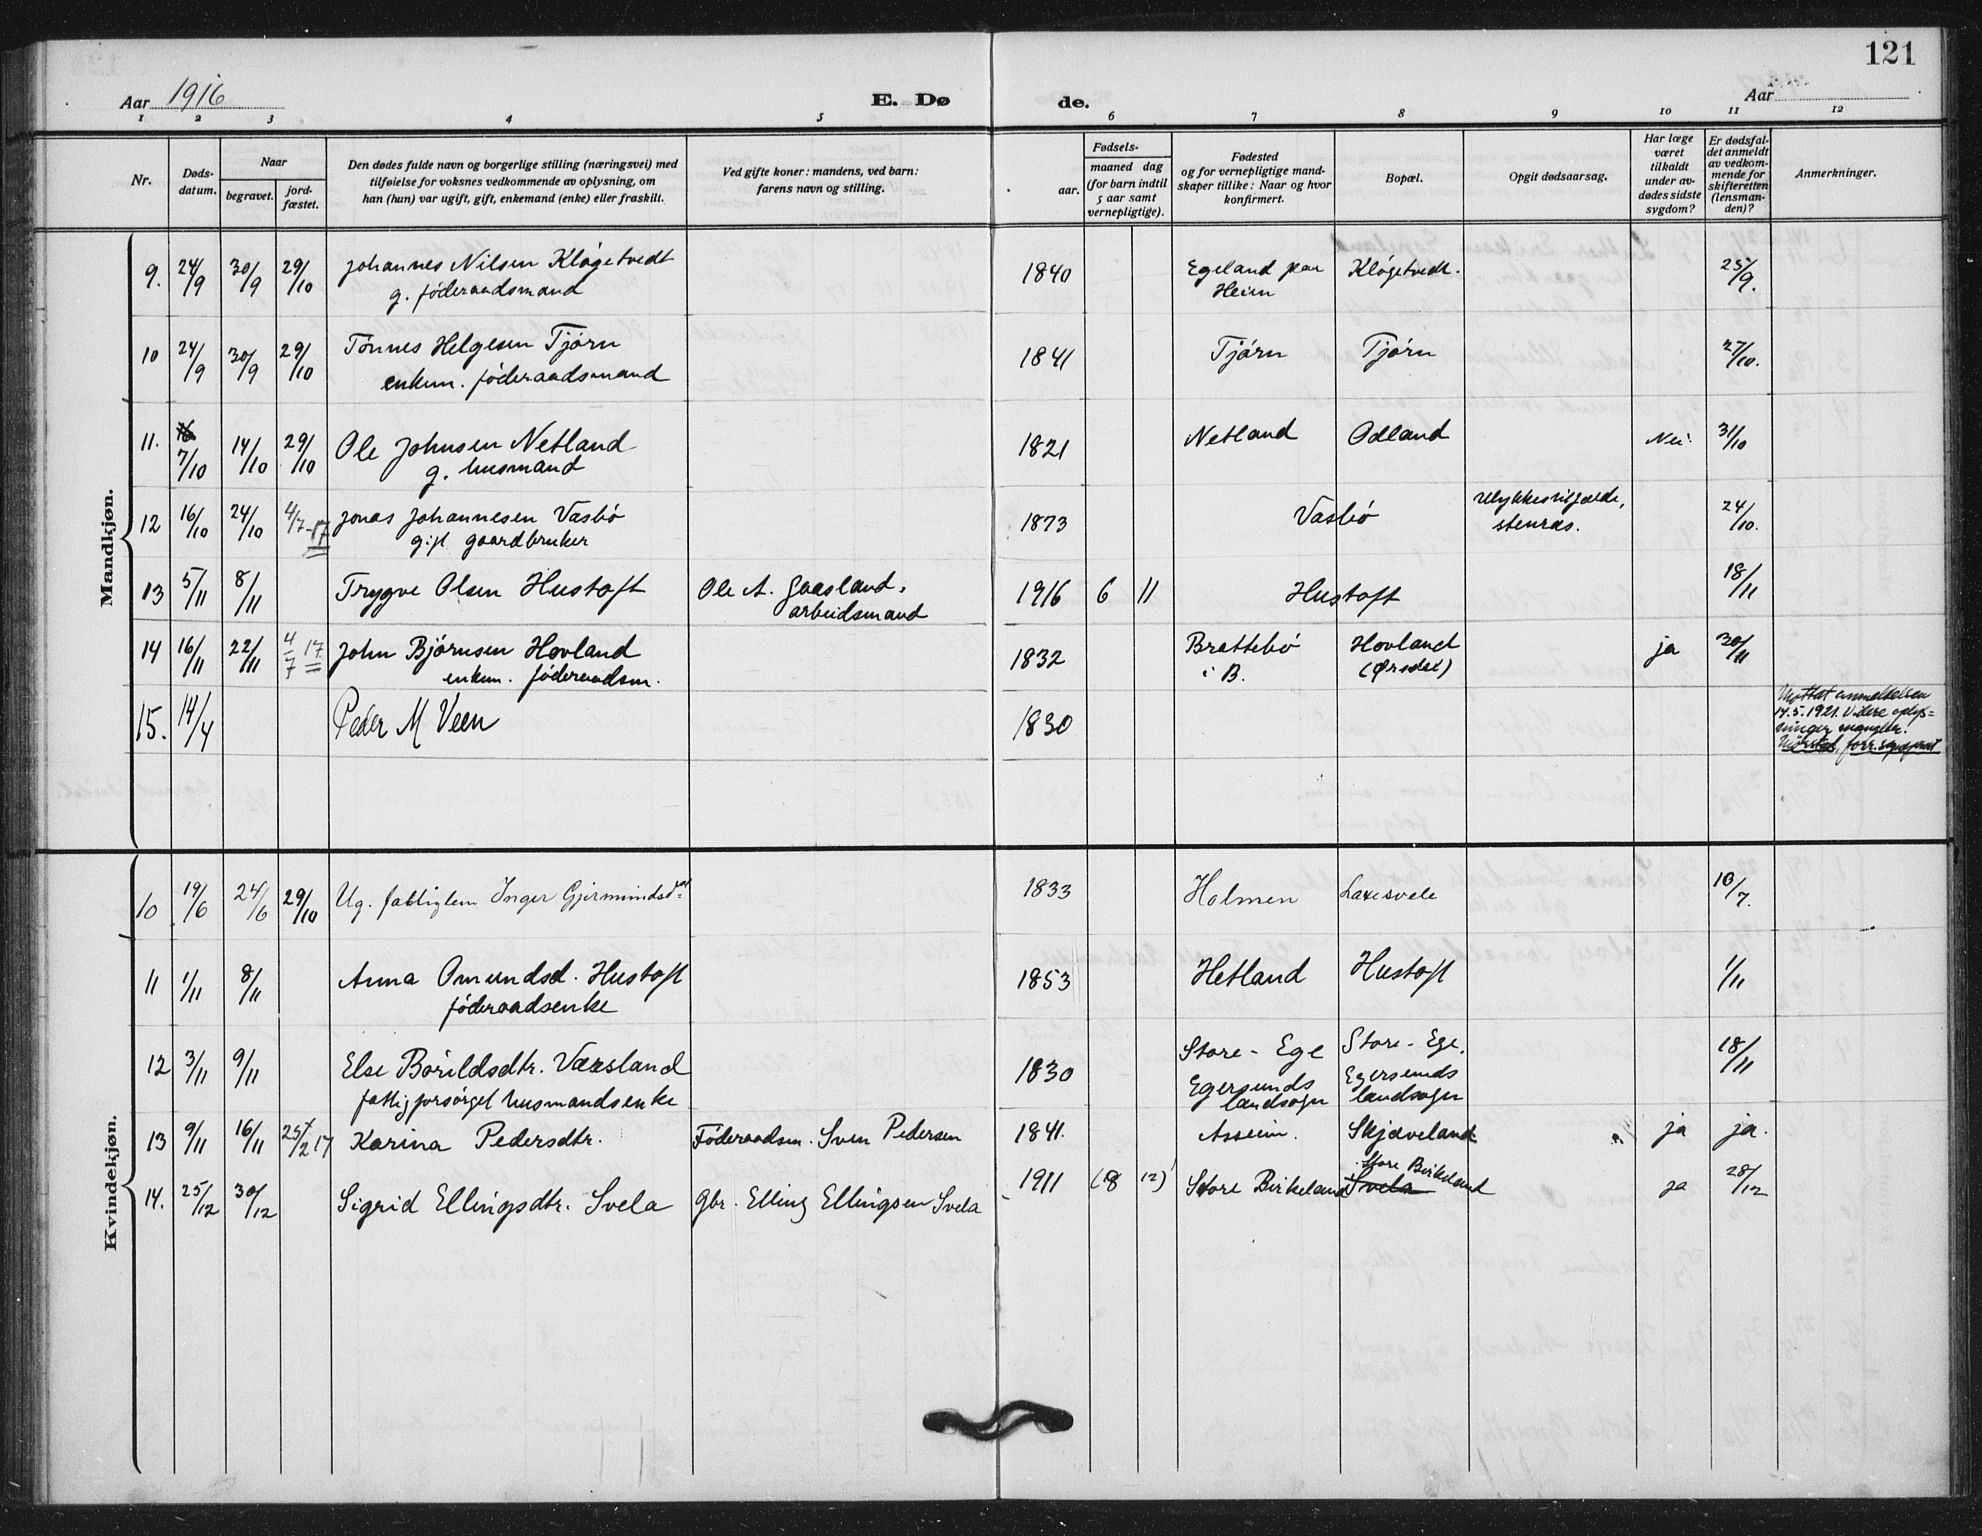 121
Aar 1916 E. Dø de. Aar
1 2 3 4 5 6 7 8 9 10 11 12
Nr.
Døds-
datum.
Naar
begravet.
jord-
fæstet.
Den dødes fulde navn og borgerlige stilling (næringsvei) med
tilføielse for voksnes vedkommende av oplysning, om
han (hun) var ugift, gift, enkemand (enke) eller fraskilt.
Ved gifte koner: mandens, ved barn:
farens navn og stilling.
Fødsels-
aar.
maaned dag
(for barn indtil
5 aar samt
vernepligtige).
Fødested
og for vernepligtige mand-
skaper tillike: Naar og hvor
konfirmert.
Bopæl.
Opgit dødsaarsag.
Har læge
været
tilkaldt
under av-
dødes sidste
sygdom?
Er dødsfal-
det anmeldt
av vedkom-
mende for
skifteretten
(lensman-
den)?
Anmerkninger.
Mandkjøn.
9. 24/9 30/9 29/10 Johannes Nilsen Kløgetvedt 1840 Egeland paa Kløgetvedt. 25/9.
g. føderaadsmand Heien
10 24/9 30/9 29/10 Tønnes Helgesen Tjørn 1841 Tjørn Tjørn 27/10.
enkem. føderaadsmand
11. 7/10 14/10 29/10 Ole Johnsen Netland 1821 Netland Odland Nei. 31/10
g. husmand
12 16/10 24/10 4/7-17 Jonas Johannesen Vasbø 1873 Vasbø ulykkestilfælde, 24/10.
gift gaardbruker stenras.
13 5/11 8/11 Trygve Olsen Hustoft Ole A. Gaasland, 1916 6 11 Hustoft 18/11
arbeidsmand
14 16/11 22/11 4/7 17 John Bjørnsen Hovland 1832 Brattebø Hovland ja 30/11
enkem. føderaadsm. i B. (Ørsdal)
15. 14/4 Peder M Veen 1830 Mottat anmeldelsen
14.5.1921. Videre oplys=
ninger mangler.
forr. sogneprest
Kvindekjøn.
10 19/6 24/6 29/10 Ug. fattiglem Inger Gjermundsdat 1833 Holmen Laxesvele 10/7.
11 1/11 8/11 Anna Omundsd. Hustoft 1853 Hetland Hustoft 1/11
føderaadsenke
12 3/11 9/11 Else Bårildsdtr. Væusland 1830 Store-Ege Store-Ege. 18/11
fattigforsørget husmandsenke Egersunds Egersunds
landsogn landsogn
13 9/11 16/11 25/2 17 Karina Pedersdtr. Føderaadsm. Sven Pedersen 1841. Asseim. Skjæveland ja ja.
14. 25/12 30/12 Sigrid Ellingsdtr. Svela Gbr. Elling Ellingsen Svela 1911 (8 12) Store Birkeland Svela Store Birkeland ja 28/12